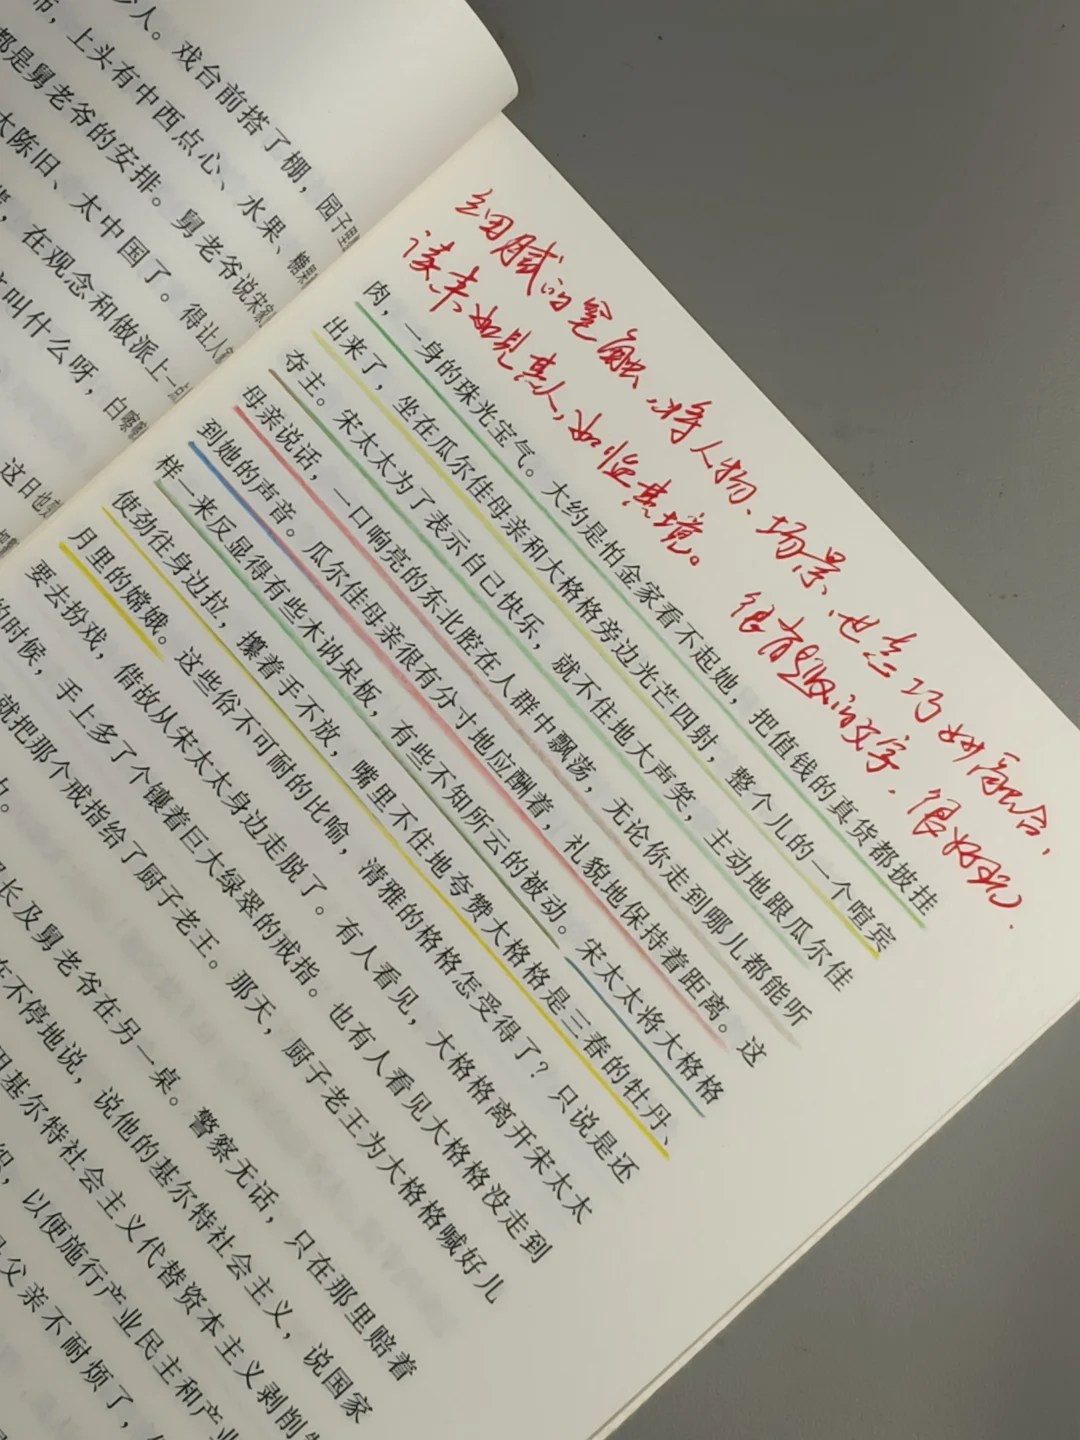 少人。戏台前搭了棚，园子里
布，上头有中西点心、水果、糖果
都是舅老爷的安排。舅老爷说宋家
太陈旧、太中国了。得让人
，在观念和做派上一
叫什么呀，白
这日也
细腻的笔触，将人物、场景、也吉巧妙融合，
读来如见其人，如临其境。
很有趣的文字。很好玩。
肉，一身的珠光宝气。大约是怕金家看不起她，把值钱的真货都披挂
出来了，坐在瓜尔佳母亲和大格格旁边光芒四射，整个儿的一个喧宾
夺主。宋太太为了表示自己快乐，就不住地大声笑，主动地跟瓜尔佳
母亲说话，一口响亮的东北腔在人群中飘荡，无论你走到哪儿都能听
到她的声音。瓜尔佳母亲很有分寸地应酬着，礼貌地保持着距离。这
样一来反显得有些木讷呆板，有些不知所云的被动。宋太太将大格格
使劲往身边拉，攥着手不放，嘴里不住地夸赞大格格是三春的牡丹、
月里的嫦娥。这些俗不可耐的比喻，清雅的格格怎受得了？只说是还
要去扮戏，借故从宋太太身边走脱了。有人看见，大格格离开宋太太
的时候，手上多了个镶着巨大绿翠的戒指。也有人看见大格格没走到
就把那个戒指给了厨子老王。那天，厨子老王为大格格喊好儿
力。
长及舅老爷在另一桌。警察无话，只在那里赔着
在不停地说，说他的基尔特社会主义，说国家
用基尔特社会主义代替资本主义剥削
织，以便施行产业民主和产业
父亲不耐烦了，